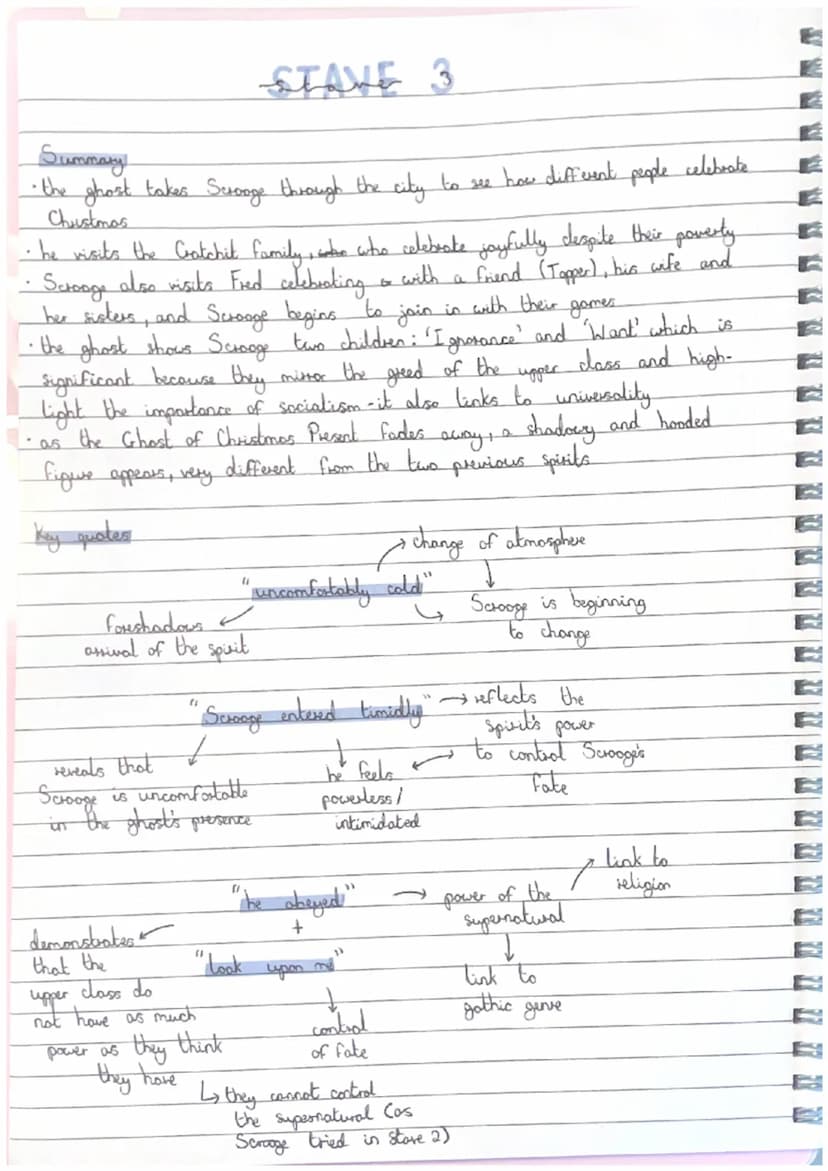 STAVE 3
Summary
· the ghost takes Scrooge through the city to see how different people celebrate
Christmas
· he visits the Cratchit family, who celebrate joyfully despite their poverty
· Scrooge also visits Fred celebrating with a friend (Topper), his wife and
her sisters, and Scrooge begins to join in with their games
· the ghost shows Scrooge two children: 'Ignorance' and 'Want' which is
significant because they mirror the greed of the upper class and high-
light the importance of socialism - it also links to universality
· as the Ghost of Christmas Present fades away, a shadowy and hooded
figure appears, very different from the two previous spirits
Key quotes
→ change of atmosphere
"uncomfortably cold"
↓
foreshadows
arrival of the spirit
Scrooge is beginning
to change
"Scrooge entered timidly" → reflects the
spirit's power
to control Scrooge's
fate
reveals that
Scrooge is uncomfortable
in the ghost's presence
he feels
powerless/
intimidated
"he obeyed" → power of the
supernatural
link to
religion
+
"look upon me"
demonstrates
that the
upper class do
not have as much
power as they think
they have
link to
gothic genre
control
of fate
↳ they cannot control
the supernatural (as
Scrooge tried in Stave 2)